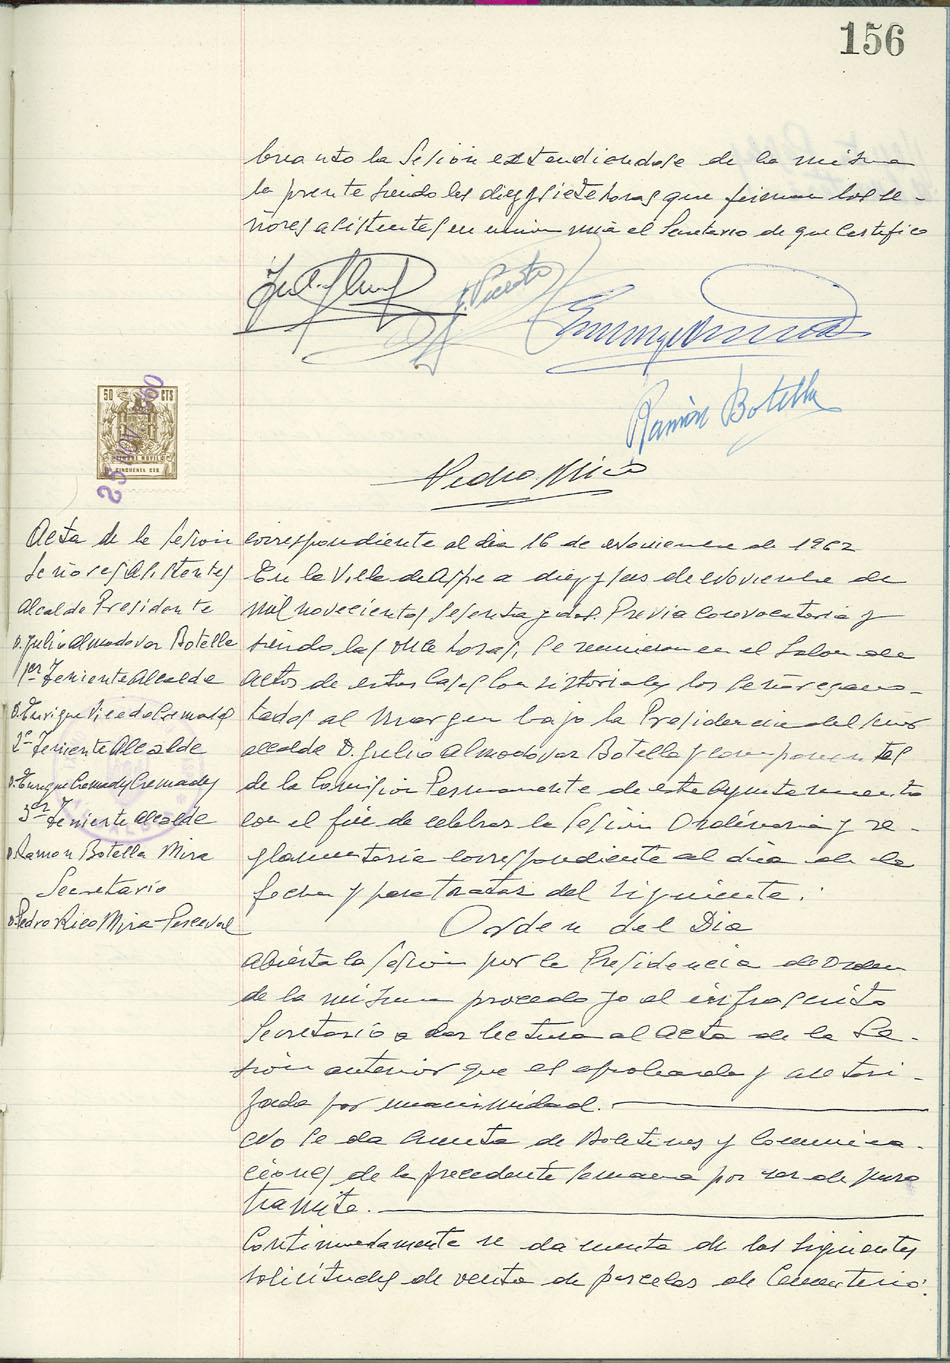 156
la Sesión extendiendose de la misma
la prente siendo las diezysiete horas que firman los se-
ñores asistentes en unión mia el Secretario de que Certifico
E. Vicedo
Ramón Botella
Pedro Rico
50 CTS
25 NOV 1960
CINCUENTA CTS
Acta de la Sesion
Señores Asistentes
Alcalde Presidente
D. Julio Almodovar Botella
1er Teniente Alcalde
D. Enrique Vicedo Cremades
2º Teniente Alcalde
D. Enrique Cremades Cremades
3er Teniente Alcalde
D. Ramon Botella Mira
Secretario
D. Pedro Rico Mira-Perceval
correspondiente al dia 16 de Noviembre de 1962
En la Villa de Aspe a diez y seis de Noviembre de
mil novecientos sesenta y dos. Previa convocatoria y
siendo las once horas, se reunieron en el Salon de
Actos de estas Casas Consistoriales los Señores ano-
tados al margen bajo la Presidencia del señor
alcalde D. Julio Almodovar Botella y componentes
de la Comision Permanente de este Ayuntamiento
con el fin de celebrar la Sesion Ordinaria y re-
glamentaria correspondiente al dia de la
fecha y para tratar del siguiente:
Orden del Dia
Abierta la sesion por la Presidencia de Orden
de la misma procedo yo el infrascrito
Secretario a dar lectura al Acta de la Se-
sion anterior que es aprobada y autori-
zada por unanimidad.
No se da cuenta de Boletines y Comunica-
ciones de la precedente semana por ser de puro
tramite.
Continuadamente se da cuenta de las siguientes
solicitudes de venta de parcelas de Cementerio: